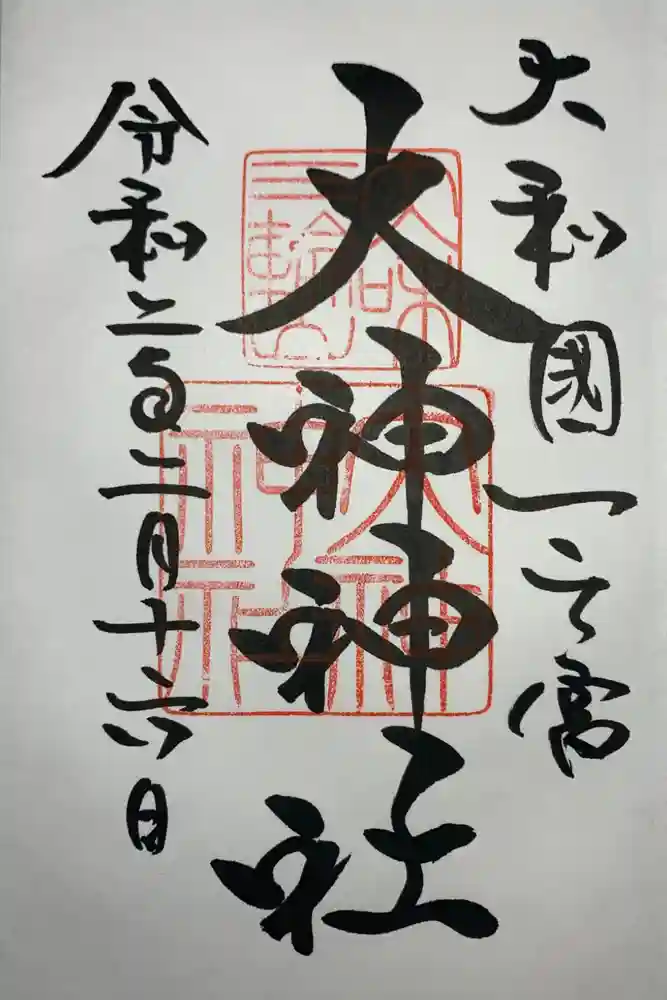 大和國一之宮
大神神社
令和二年二月十六日
大和
三輪
大神
神社